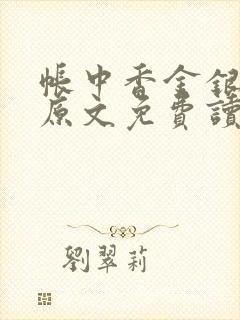 帳中香金銀
原文免費讀
劉翠莉